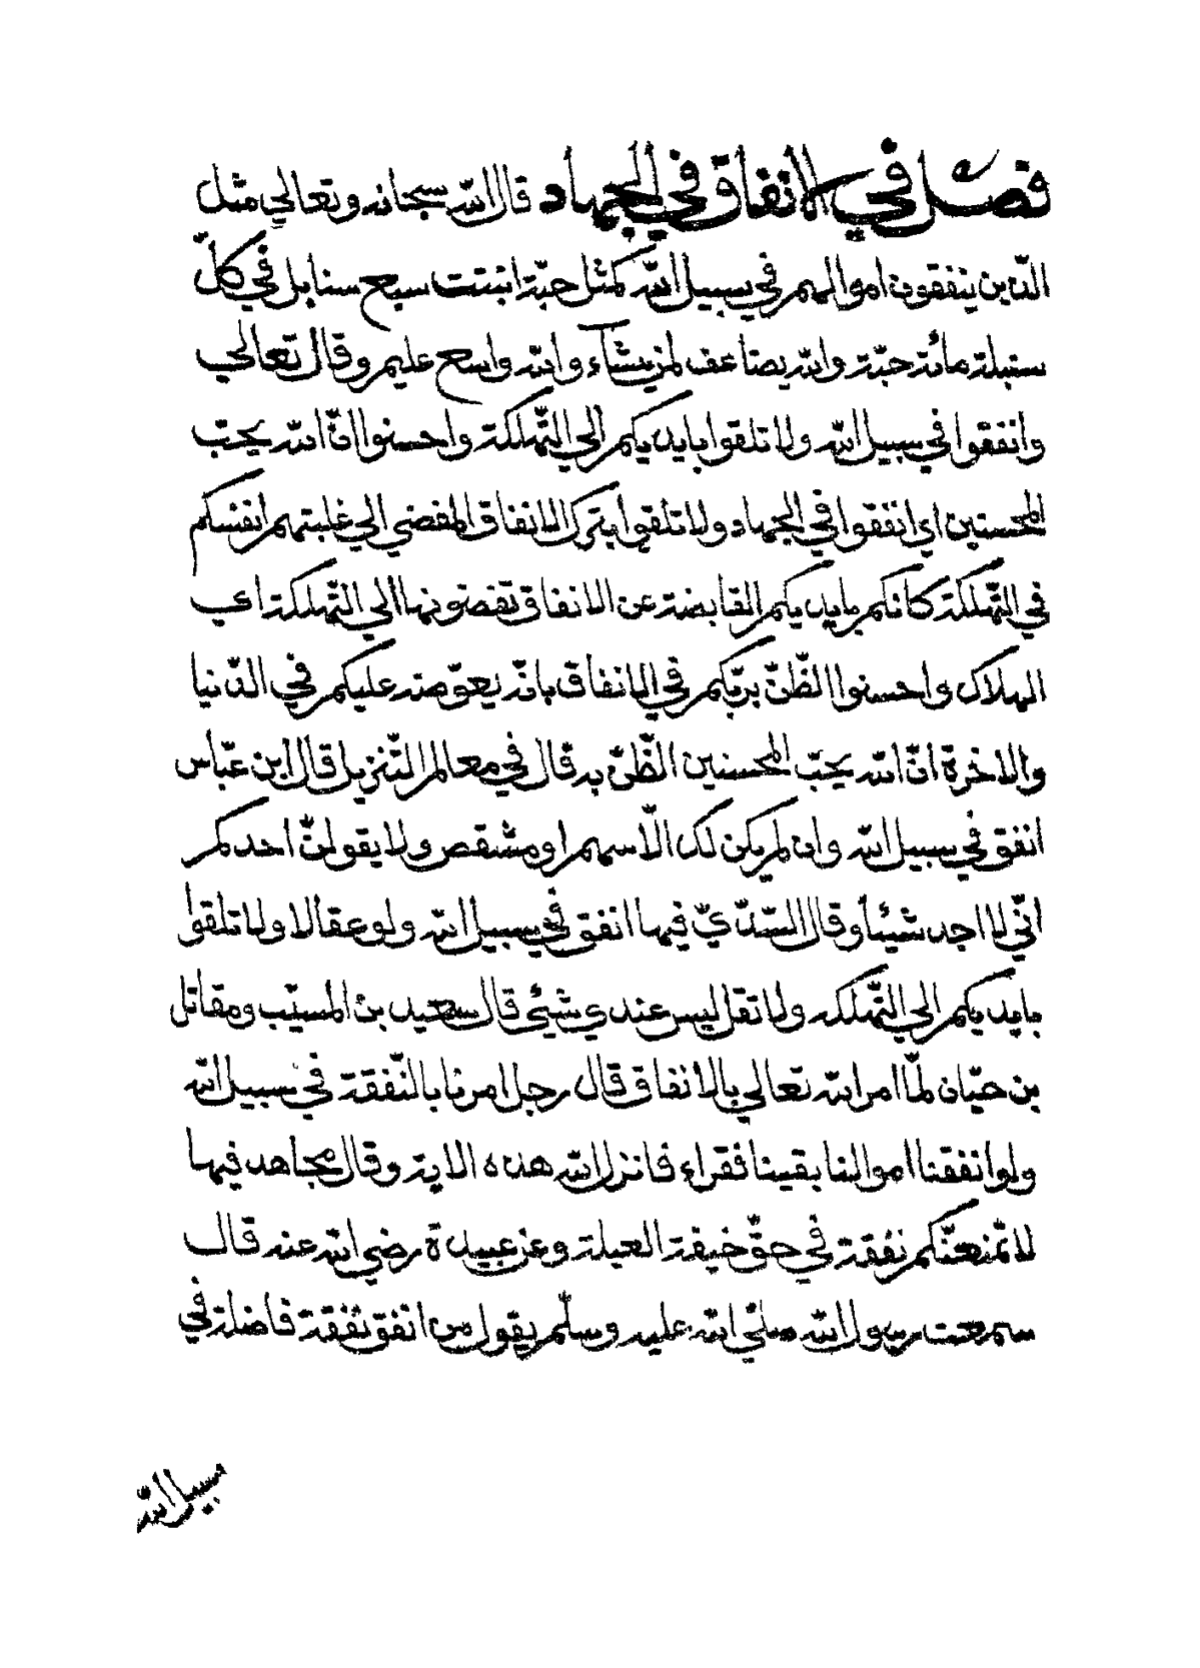 فصل في الانفاق في الجهاد قال الله سبحانه وتعالي مثل
الّذين ينفقون اموالهم في سبيل الله كمثل حبّة انبتت سبع سنابل في كلّ
سنبلة مائة حبّة والله يضاعف لمن يشآء والله واسع عليم وقال تعالي
وانفقوا في سبيل الله ولا تلقوا بايديكم الي التّهلكة واحسنوا انّ الله يحبّ
المحسنين اي انفقوا في الجهاد ولا تلقوا بترك الانفاق المفضي الي غلبتهم انفسكم
في التّهلكة كانكم بايديكم القابضة عن الانفاق تفضونها الي التّهلكة اي
الهلاك واحسنوا الظّنّ بربّكم في الانفاق بانّه يعوّضه عليكم في الدّنيا
والاخرة انّ الله يحبّ المحسنين الظّنّ به قال في معالم التّنزيل قال ابن عبّاس
انفق في سبيل الله وان لم يكن لك الّا سهم او مشقص ولا يقولنّ احدكم
انّي لا اجد شيئا وقال السّدّيّ فيها انفق في سبيل الله ولو عقالا ولا تلقوا
بايديكم الي التّهلكه ولا تقل ليس عندي شيئي قال سعيد بن المسيّب ومقاتل
بن حيّان لمّا امر الله تعالي بالانفاق قال رجل امرنا بالنّفقة في سبيل الله
ولو انفقنا اموالنا بقينا فقراء فانزل الله هذه الاية وقال مجاهد فيها
لا تمنعنّكم نفقة في حقّ خيفة العيلة وعن عبيدة رضي الله عنه قال
سمعت رسول الله صلّي الله عليه وسلّم يقول من انفق نفقة فاضلة في
سبيل الله